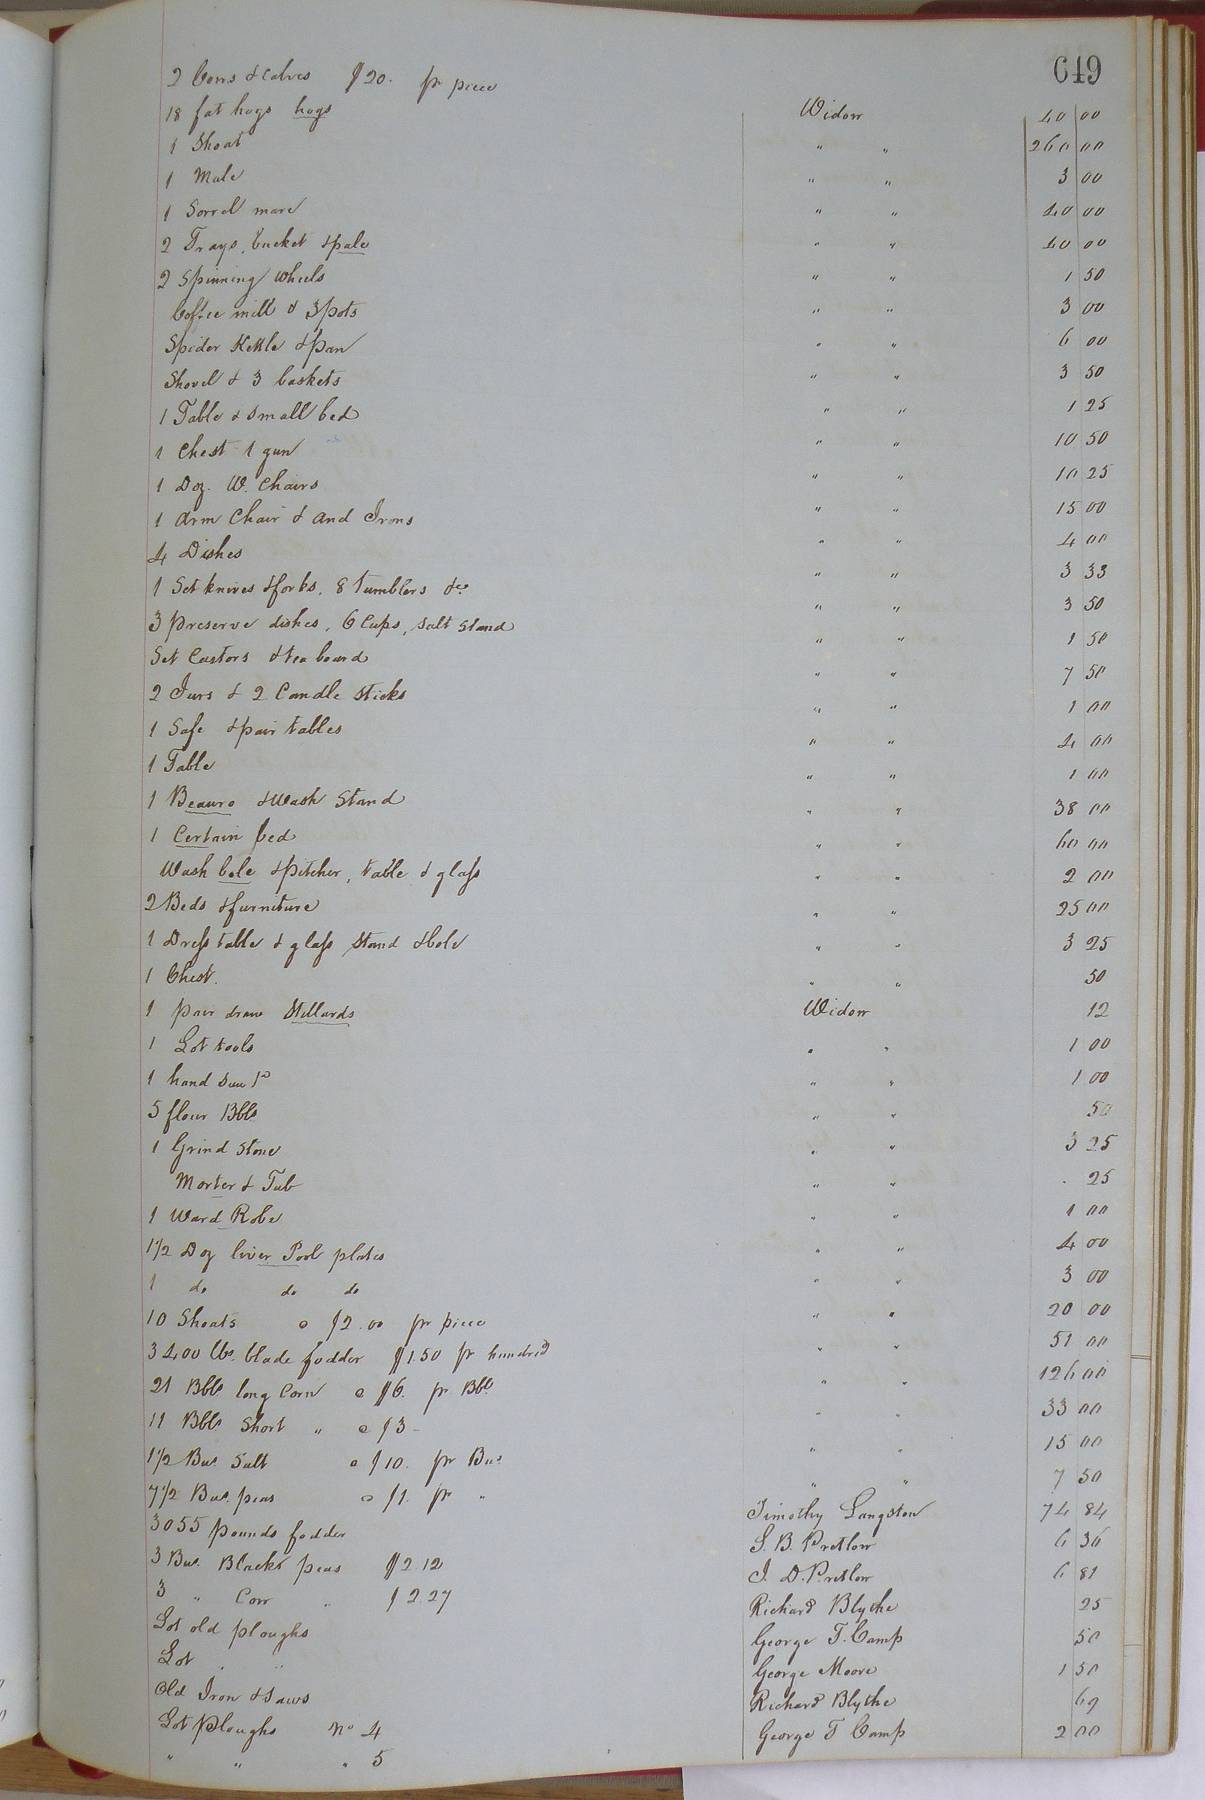 649
2 Cows & calves $20. pr piece Widow 40 00
18 fat hogs hogs " " 260 00
1 Shoat " " 3 00
1 Mule " " 40 00
1 Sorrel mare " " 40 00
2 Trays, bucket & pale " " 1 50
2 Spinning wheels " " 3 00
Coffee mill & 3 pots " " 6 00
Spider Kettle & pan " " 3 50
Shovel & 3 baskets " " 1 25
1 Table & small bed " " 10 50
1 Chest 1 gun " " 10 25
1 Doz. W. Chairs " " 15 00
1 Arm Chair & And Irons " " 4 00
4 Dishes " " 3 33
1 Set knives & forks, 8 tumblers &c. " " 3 50
3 preserve dishes, 6 Cups, salt stand " " 1 50
Set Castors & tea board " " 7 50
2 Jars & 2 Candle sticks " " 1 00
1 Safe & pair tables " " 4 00
1 Table " " 1 00
1 Beauro & Wash Stand " " 38 00
1 Certain bed " " 60 00
Wash bole & pitcher, table & glass " " 2 00
2 Beds & furniture " " 25 00
1 Dress table & glass stand & bole " " 3 25
1 Chest. " " 50
1 pair draw Stillards Widow 12
1 Lot tools " " 1 00
1 hand saw " " 1 00
5 flour Bbls " " 50
1 Grind Stone " " 3 25
Morter & Tub " " . 25
1 Ward Robe " " 1 00
1 1/2 Doz liver Pool plates " " 4 00
1 do do do " " 3 00
10 Shoats @ $2.00 pr piece " " 20 00
3400 lbs. blade fodder $1.50 pr hundred " " 51 00
21 Bbls long Corn @ $6. pr Bbl " " 126 00
11 Bbls Short " @ $3 - " " 33 00
1 1/2 Bus. Salt @ $10. pr Bus. " " 15 00
7 1/2 Bus. peas @ $1. pr " " " 7 50
3055 pounds fodder Timothy Langston 74 84
3 Bus. Black peas $2.12 S. B. Pretlow 6 36
3 " Corn " $2.27 J. D. Pretlow 6 81
Lot old ploughs Richard Blythe 25
Lot " " George T. Camp 50
Old Iron & saws George Moore 1 50
Lot Ploughs No 4 Richard Blythe 69
" " " 5 George T Camp 2 00